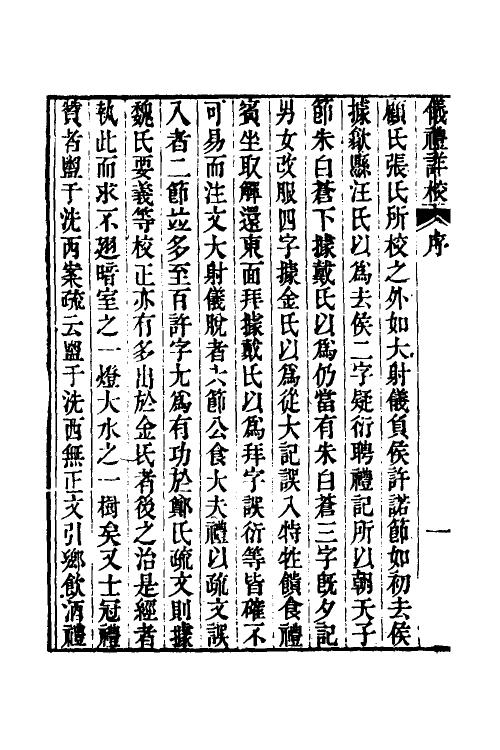 儀禮詳校　序　一
顧氏張氏所校之外如大射儀負侯許諾節如初去侯
據歙縣汪氏以爲去侯二字疑衍聘禮記所以朝天子
節朱白蒼下據戴氏以爲仍當有朱白蒼三字旣夕記
男女改服四字據金氏以爲從大記誤入特牲饋食禮
賓坐取觶還東面拜據戴氏以爲拜字誤衍等皆確不
可易而注文大射儀脫者六節公食大夫禮以疏文誤
入者二節竝多至百許字尤爲有功於鄭氏疏文則據
魏氏要義等校正亦有多出於金氏者後之治是經者
執此而求不翅暗室之一燈大水之一樹矣又士冠禮
贊者盥于洗西案疏云盥于洗西無正文引鄉飲酒禮